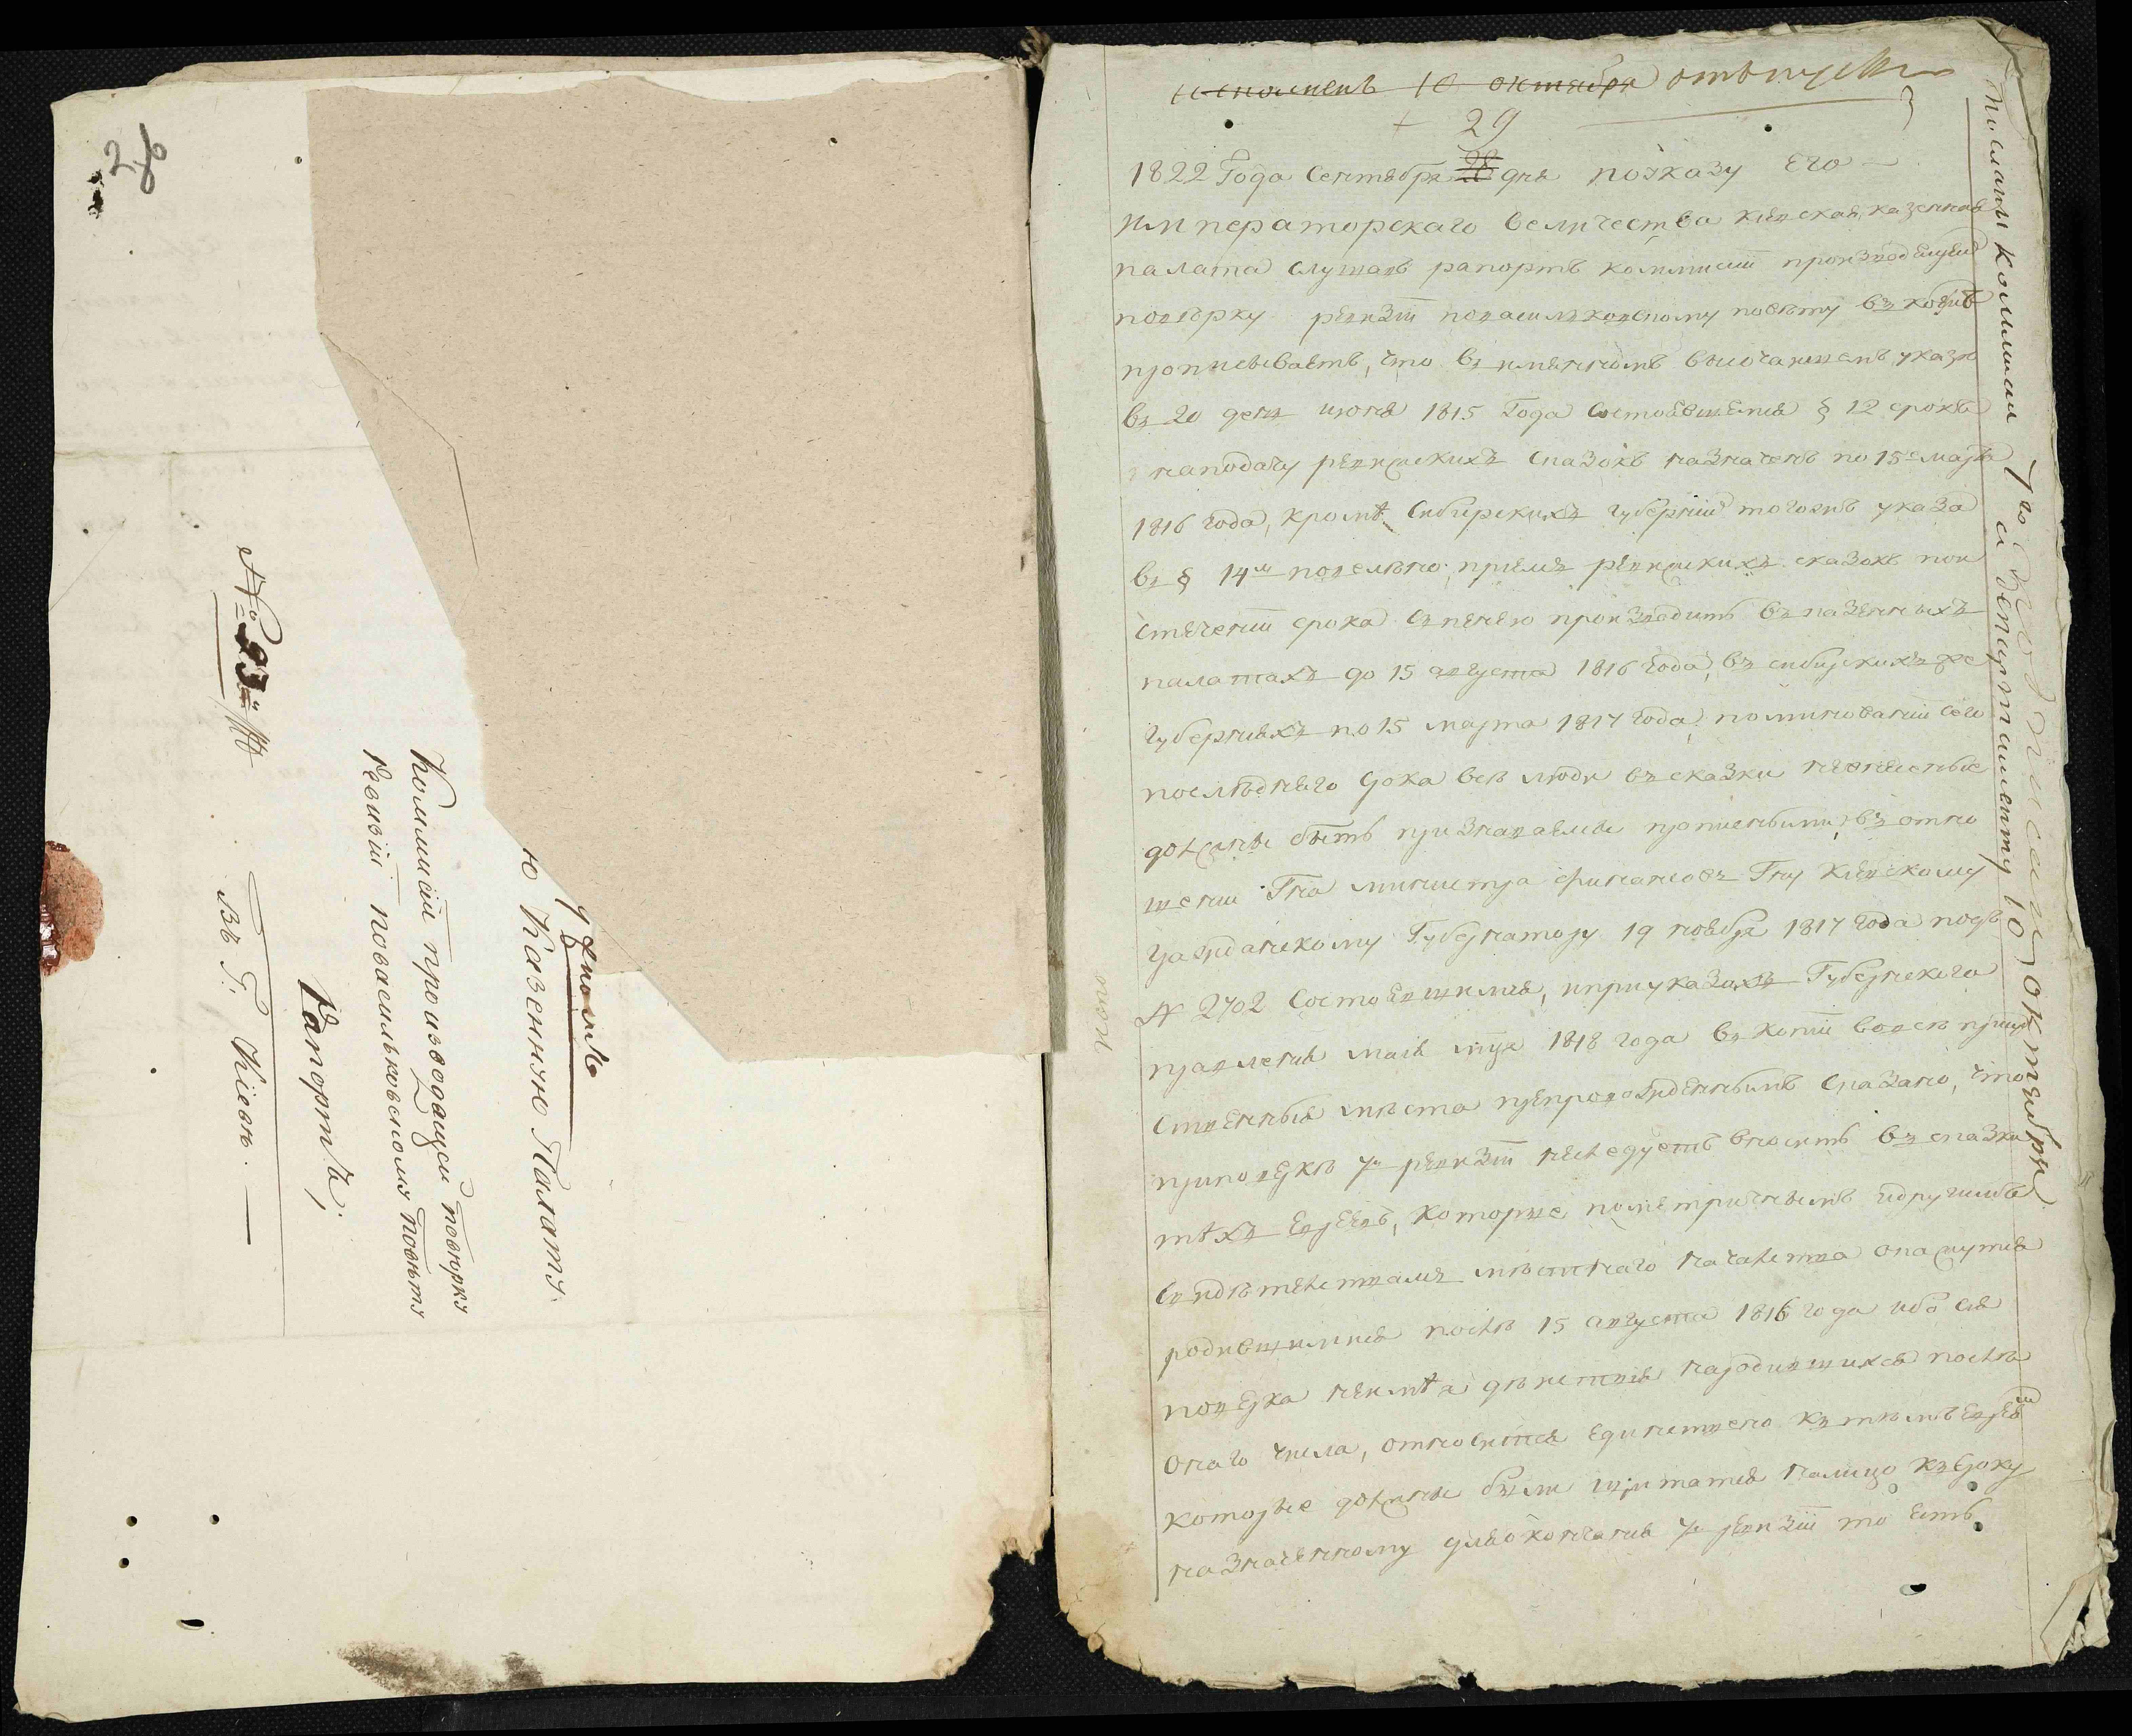 26
№ 93
Въ Г. Кіевъ.
Рапортъ,
Коммисіи производящей повѣрку
Ревизіи поВасильковскому Повѣту
ю Казенную Палату.
исполненъ 10 октября отъпускъ
29
1822 Года Сентября дня поуказу Его
Императорскаго Величества Кіевская казенная
палата Слушавъ рапортъ коммисіи производящей
повѣрку ревизіи повасильковскому повѣту въ коемъ
прописываетъ, что въ имянномъ высочайшемъ указѣ
въ 20 день июня 1815 Года Состоявшемся § 12 срокъ
наподачу ревижскихъ Сказокъ назначенъ по 15е марта
1816 года, кромѣ Сибирскихъ Губерний тогожъ указа
въ § 14м повелѣно приемъ ревижскихъ сказокъ по и
стечении срока съ пенею производить въ казенныхъ
палатахъ до 15 августа 1816 года, въ сибирскихъ же
губернияхъ по 15 марта 1817 года, поминовании сего
послѣдняго срока всѣ люди въ сказки невнесенные
должны быть признаваемы прописными, въ отно
шении Гна министра финансовъ Гну Киевскому
Гражданскому Губернатору 19 ноября 1817 года подъ
№ 2702 Состоявшимся, ипри указахъ Губернскаго
правления маия 1818 года въ копии вовсѣ прису
ственныя мѣста препровожденнымъ Сказано, что
приповѣркѣ 7й ревизіи неслѣдуетъ вносить въ сказки
тѣхъ Евреевъ, которые пометричнымъ идругимъ
Свидѣтельствамъ мѣстнаго начальства окажутся
родившимися послѣ 15 августа 1816 года ибо сия
повѣрка неимѣя дѣйствія народившихся послѣ
онаго числа, относится единственно къ тѣмъ Евреям
которые должны были щитатся налицо къ сроку
назначенному дляокончания 7й ревизіи то есть
Посланы коммисіи
7го
и департаменту 10 октября